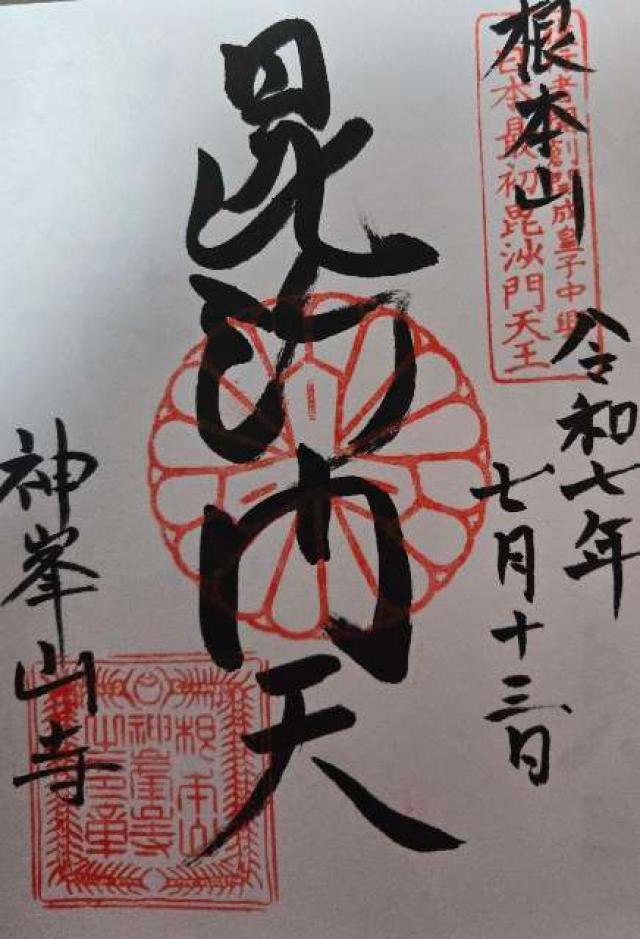 根本山
役行者開創開成皇子中興
日本最初毘沙門天王
令和七年
七月十三日
毘沙門天
神峯山寺
根本山
神峯山寺
之印章